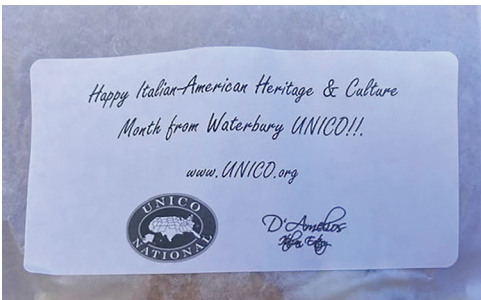 Happy Italian-American Heritage & Culture
Month from Waterbury UNICO!!.
www.UNICO.org
UNICO
NATIONAL
D'Amelios
Italian Eatery